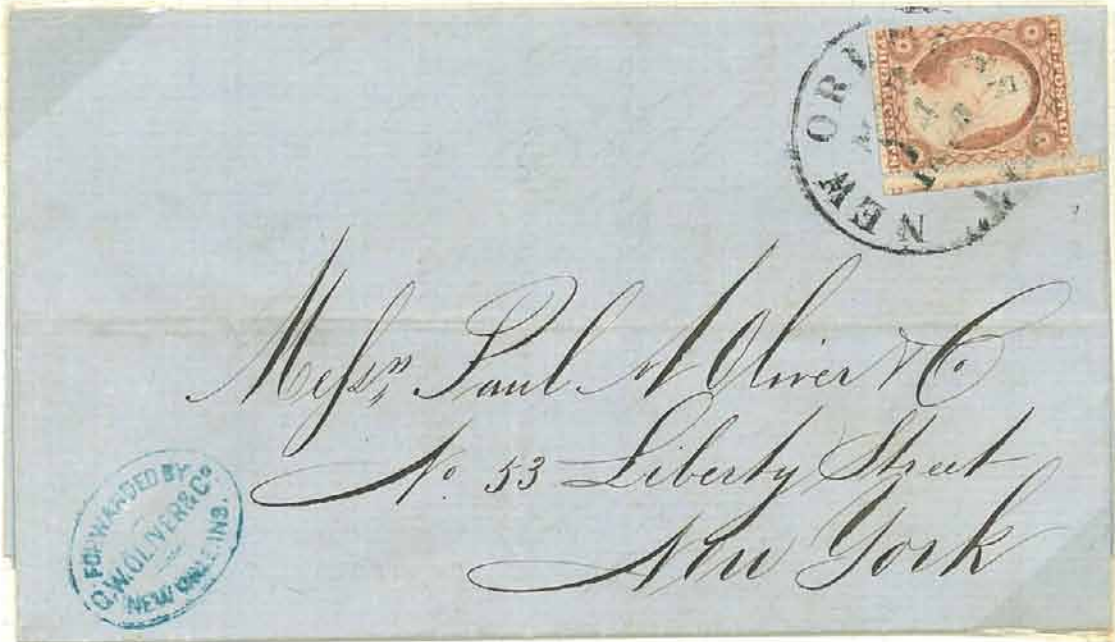 NEW OR
Messrs Paul N Oliver & Co
No 53 Liberty Street
New York
FORWARDED BY
O.W. OLIVER & Co
NEW ORLEANS.